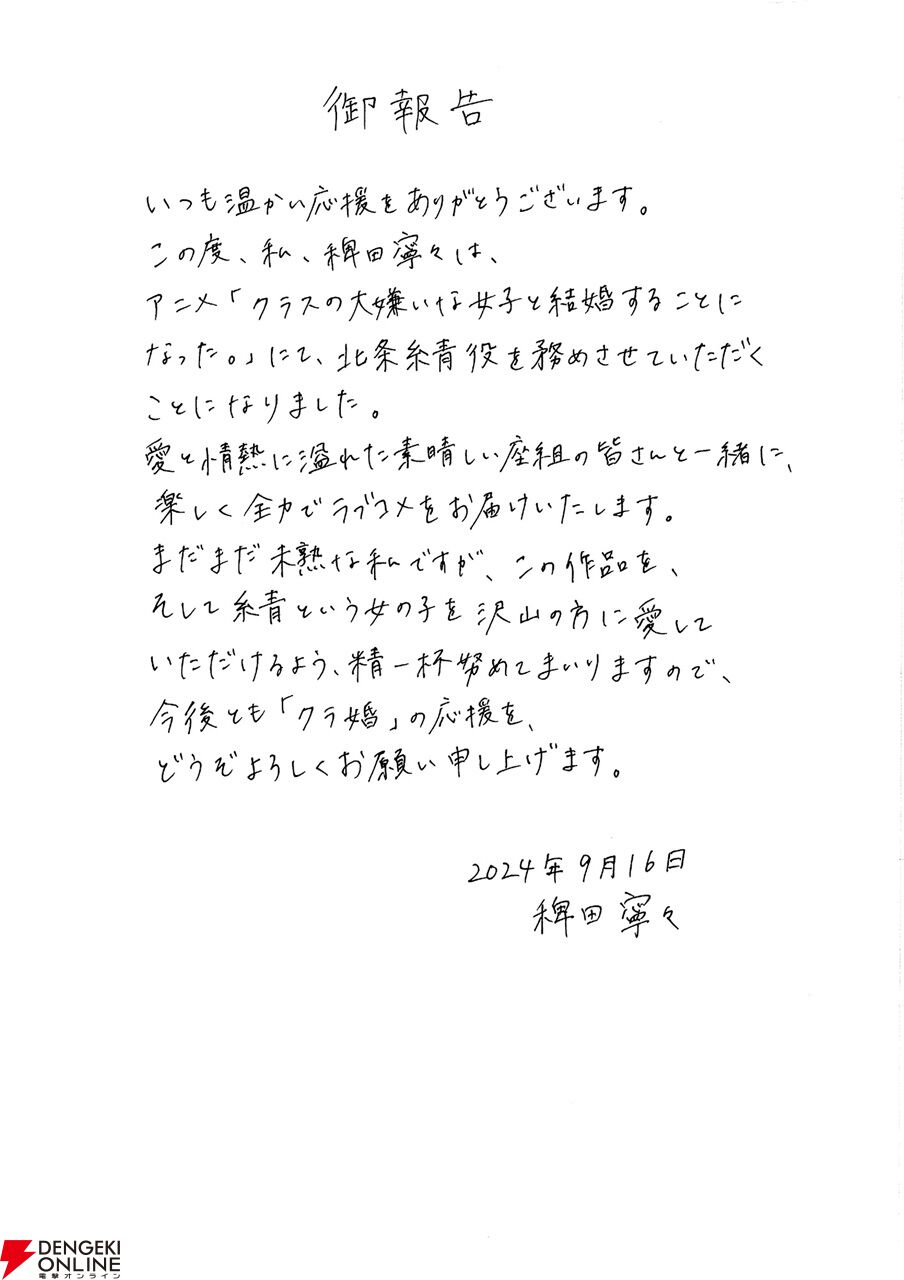 御報告
いつも温かい応援をありがとうございます。
この度、私、稗田寧々は、
アニメ「クラスの大嫌いな女子と結婚することに
なった。」にて、北条糸青役を務めさせていただく
ことになりました。
愛と情熱に溢れた素晴しい座組の皆さんと一緒に、
楽しく全力でラブコメをお届けいたします。
まだまだ未熟な私ですが、この作品を、
そして糸青という女の子を沢山の方に愛して
いただけるよう、精一杯努めてまいりますので、
今後とも「クラ婚」の応援を、
どうぞよろしくお願い申し上げます。
2024年9月16日
稗田寧々
DENGEKI
ONLINE
電撃オンライン